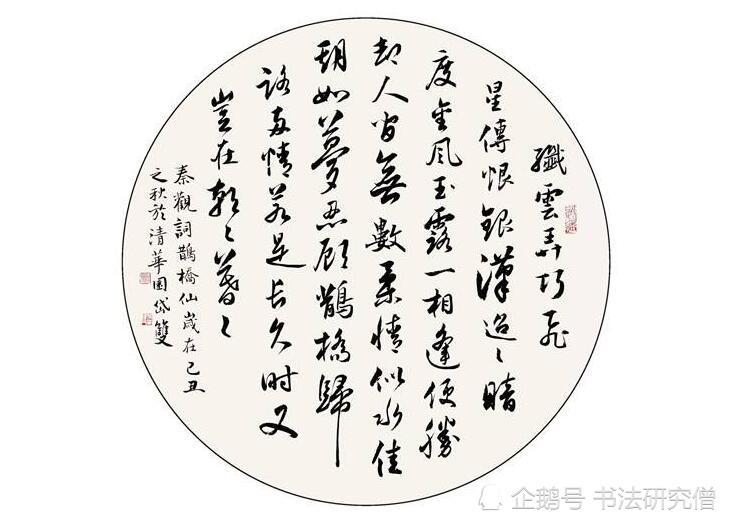 纖雲弄巧飛
星傳恨銀漢迢々暗
度金風玉露一相逢便勝
却人間無數柔情似水佳
期如夢忍顧鵲橋歸
路兩情若是長久時又
豈在朝々暮々
秦觀詞鵲橋仙歲在己丑
之秋於清華園岱雙
企鹅号 书法研究僧